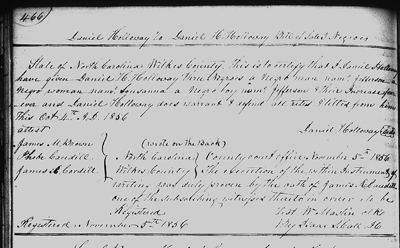 466
Daniel Holloway To Daniel H. Holloway Bill of Sale 3 Negroes
State of North Carolina Wilkes County. This is to certify that I Daniel Holloway
have given Daniel H. Holloway three Negroes a Negro man name Jefferson a
Negro woman name Sousanna a Negro boy name Jefferson & thire Increase for
ever and Daniel Holloway does warrant & defend all rites & titles from him
this Oct 4th A.D. 1856
attest Daniel Holloway
James M. Brown (wrote on the back)
Phebe Caudill North Carolina County court office November 5th 1856
James H. Caudill Wilkes County The Execution of the within Instrument of
writing was duly proven by the oath of James H. Caudill
one of the subscribing witnesses thereto in order to be
Registered Test W Mastin Clk
Registered November 5th 1856 By Isaac